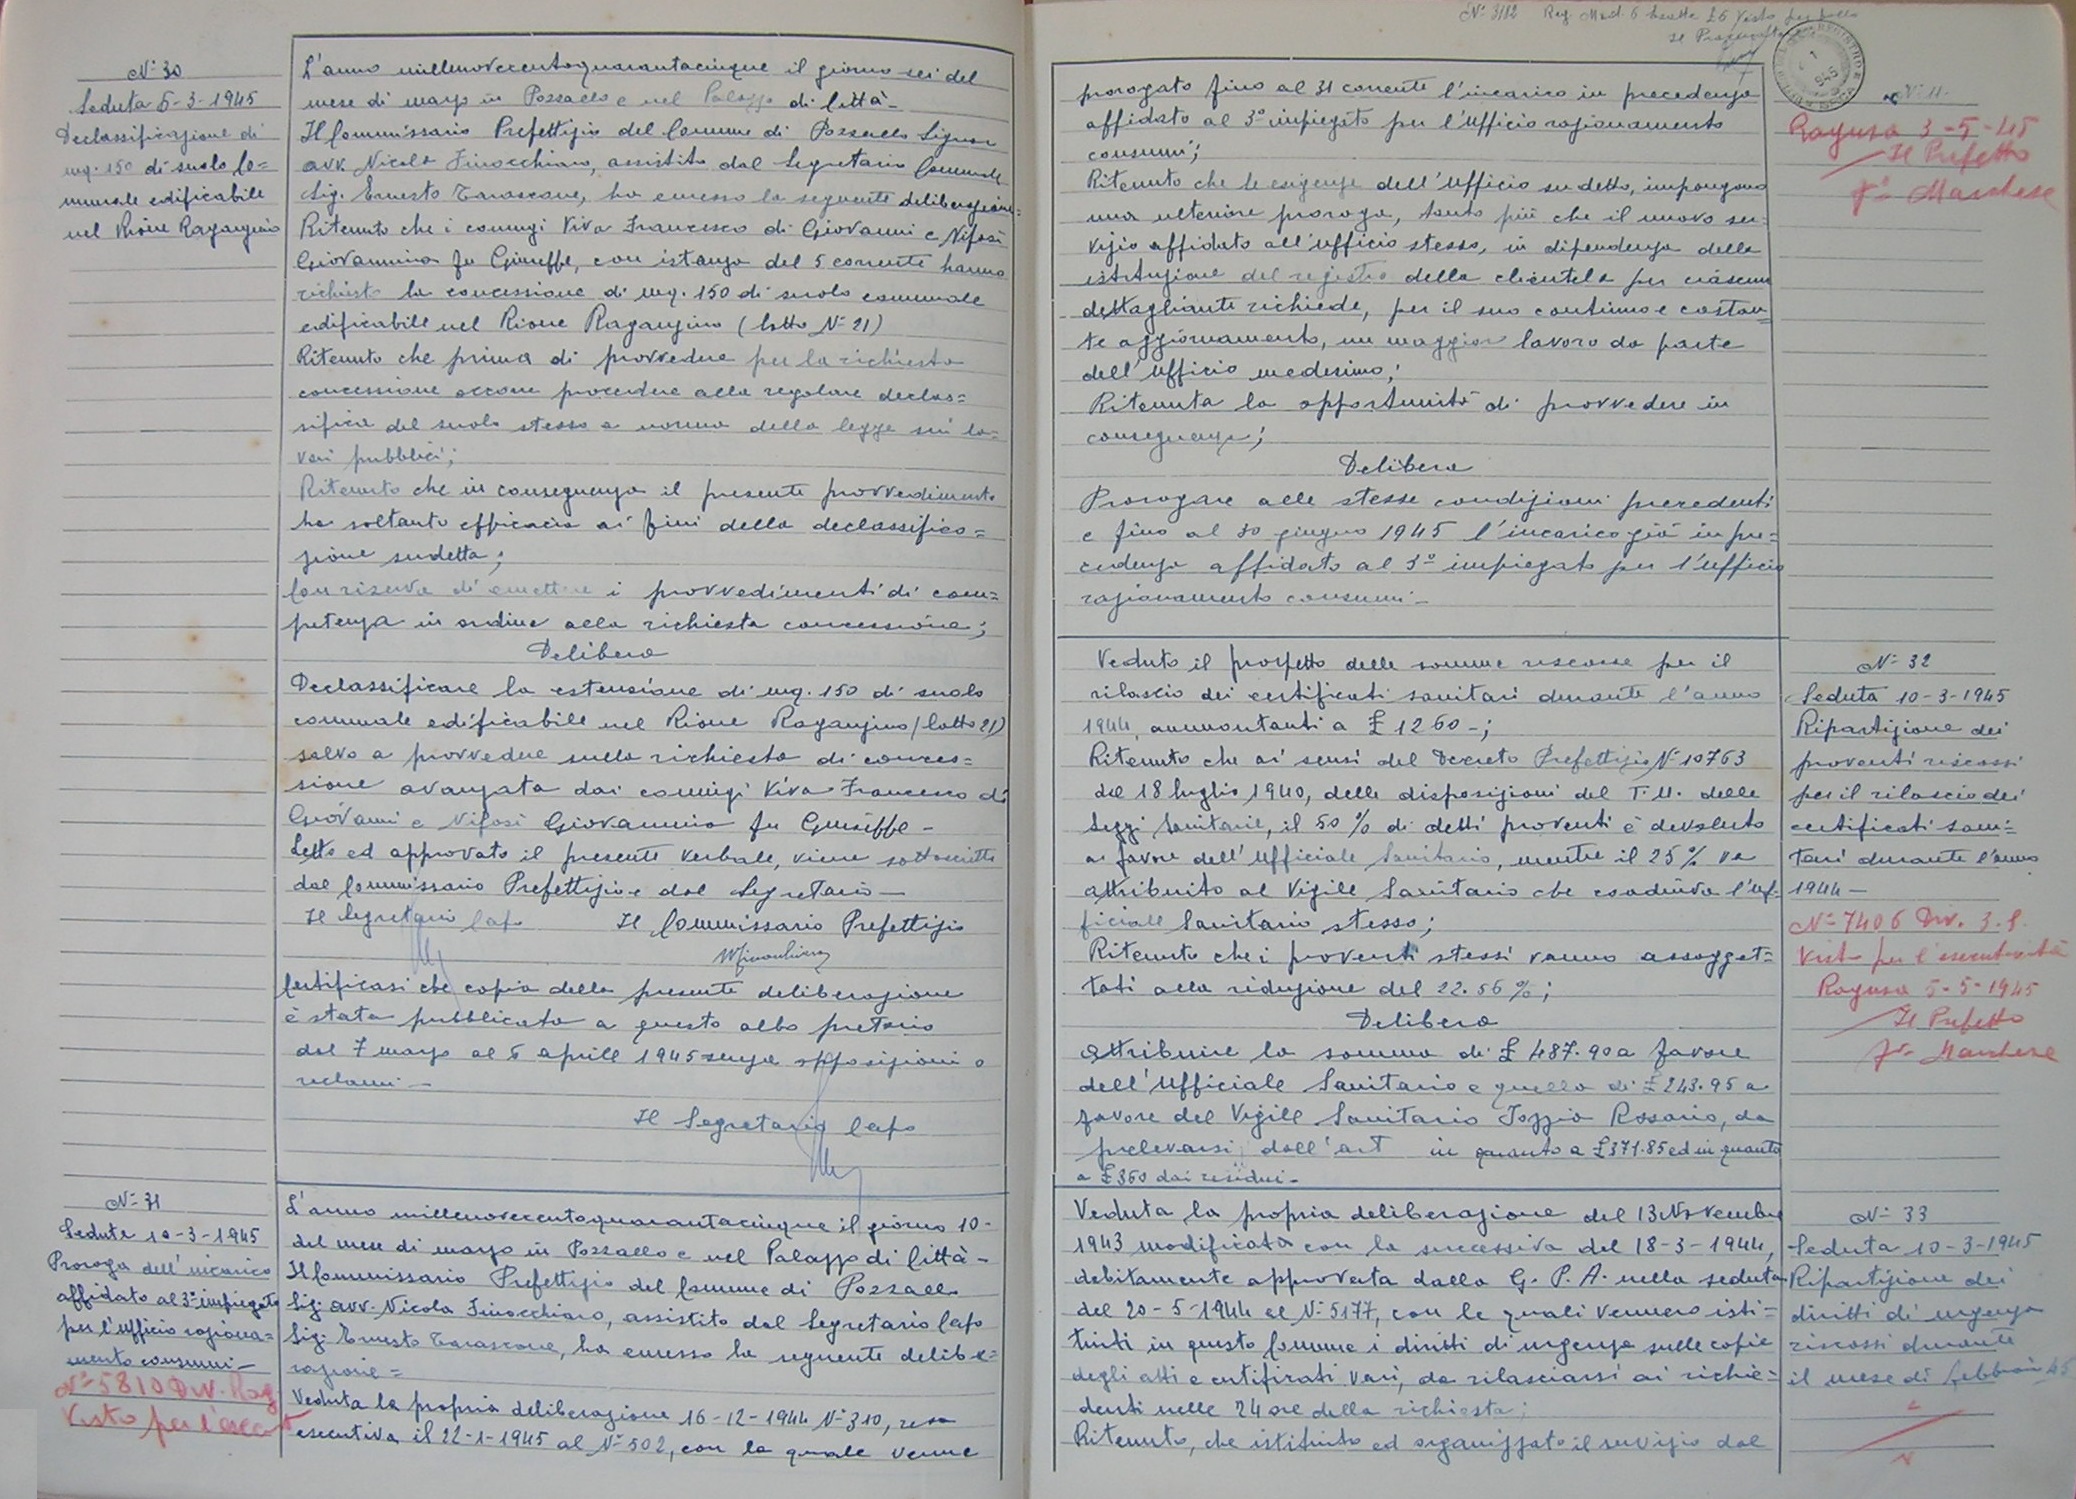 N° 30
Seduta 6-3-1945
Declassificazione di
mq. 150 di suolo co=
munale edificabile
nel Rione Raganzino
L'anno millenovecentoquarantacinque il giorno sei del
mese di marzo in Pozzallo e nel Palazzo di Città -
Il Commissario Prefettizio del Comune di Pozzallo Signor
avv. Nicola Finocchiaro, assistito dal Segretario Comunale
Sig. Ernesto Tarascone, ha emesso la seguente deliberazione=
Ritenuto che i coniugi Viva Francesco di Giovanni e Nifosì
Giovannina fu Giuseffe, con istanza del 5 corrente hanno
richiesto la concessione di mq. 150 di suolo comunale
edificabile nel Rione Raganzino (lotto N° 21)
Ritenuto che prima di provvedere per la richiesta
concessione occorre procedere alla regolare declas=
sifica del suolo stesso a norma della legge sui la=
vori pubblici;
Ritenuto che in conseguenza il presente provvedimento
ha soltanto efficacia ai fini della declassifica=
zione sudetta;
Con riserva di emettere i provvedimenti di com=
petenza in ordine alla richiesta concessione;
Delibera
Declassificare la estensione di mq. 150 di suolo
comunale edificabile nel Rione Raganzino (lotto 21)
salvo a provvedere sulla richiesta di conces=
sione avanzata dai coniugi Viva Francesco di
Giovanni e Nifosì Giovannina fu Giuseffe -
Letto ed approvato il presente verbale, viene sottoscritto
dal Commissario Prefettizio e dal Segretario -
Il Segretario Capo Il Commissario Prefettizio
Certificasi che copia della presente deliberazione
è stata pubblicata a questo albo pretorio
dal 7 marzo al 6 aprile 1945 senza opposizioni o
reclami -
Il Segretario Capo
N° 31
Seduta 10-3-1945
Proroga dell'incarico
affidato al 3° impiegato
per l'ufficio raziona=
mento consumi -
N° 5810 Div. Rag
Visto per l'esecut
L'anno millenovecentoquarantacinque il giorno 10-
del mese di marzo in Pozzallo e nel Palazzo di Città -
Il Commissario Prefettizio del Comune di Pozzallo
Sig. avv. Nicola Finocchiaro, assistito dal Segretario Capo
Sig. Ernesto Tarascone, ha emesso la seguente delibe=
razione =
Veduta la propria deliberazione 16-12-1944 N° 310, resa
esecutiva il 22-1-1945 al N° 502, con la quale venne
N° 3182 Reg. Mod. 6 Esatte £ 6 Visto per bollo
Il Procuratore
prorogato fino al 31 corrente l'incarico in precedenza
affidato al 3° impiegato per l'Ufficio razionamento
consumi;
Ritenuto che le esigenze dell'Ufficio su detto, impongono
una ulteriore proroga, tanto più che il nuovo ser=
vizio affidato all'ufficio stesso, in dipendenza della
istituzione del registro della clientela per ciascun
dettagliante richiede, per il suo continuo e costan=
te aggiornamento, un maggior lavoro da parte
dell'Ufficio medesimo;
Ritenuta la opportunità di provvedere in
conseguenza;
Delibera
Prorogare alle stesse condizioni precedenti
e fino al 30 giugno 1945 l'incarico già in pre=
cedenza affidato al 3° impiegato per l'Ufficio
razionamento consumi -
N° 11
Ragusa 3-5-45
Il Prefetto
f° Marchese
Veduto il prospetto delle somme riscosse per il
rilascio dei certificati sanitari durante l'anno
1944, ammontanti a £ 1260 -;
Ritenuto che ai sensi del Decreto Prefettizio N° 10763
del 18 luglio 1940, delle disposizioni del T. U. delle
Leggi Sanitarie, il 50 % di detti proventi è devoluto
a favore dell'Ufficiale Sanitario, mentre il 25 % va
attribuito al Vigile Sanitario che coadiuva l'Uf=
ficiale Sanitario stesso;
Ritenuto che i proventi stessi vanno assogget=
tati alla riduzione del 22.56 %;
Delibera
Attribuire la somma di £ 487.90 a favore
dell'Ufficiale Sanitario e quella di £ 243.95 a
favore del Vigile Sanitario Iozzia Rosario, da
prelevarsi dall'art in quanto a £ 371.85 ed in quanto
a £ 360 dai residui -
N° 32
Seduta 10-3-1945
Ripartizione dei
proventi riscossi
per il rilascio dei
certificati sani=
tari durante l'anno
1944 -
N° 7406 Div. 3. S.
Visto per l'esecutività
Ragusa 5-5-1945
Il Prefetto
f° Marchese
Veduta la propria deliberazione del 13 Novembre
1943 modificata con la successiva del 18-3-1944,
debitamente approvata dalla G. P. A. nella seduta
del 20-5-1944 al N° 5177, con le quali vennero isti=
tuiti in questo Comune i diritti di urgenza sulle copie
degli atti e certificati vari, da rilasciarsi ai richie=
denti nelle 24 ore della richiesta;
Ritenuto, che istituito ed organizzato il servizio dal
N° 33
Seduta 10-3-1945
Ripartizione dei
diritti di urgenza
riscossi durante
il mese di febbraio 45